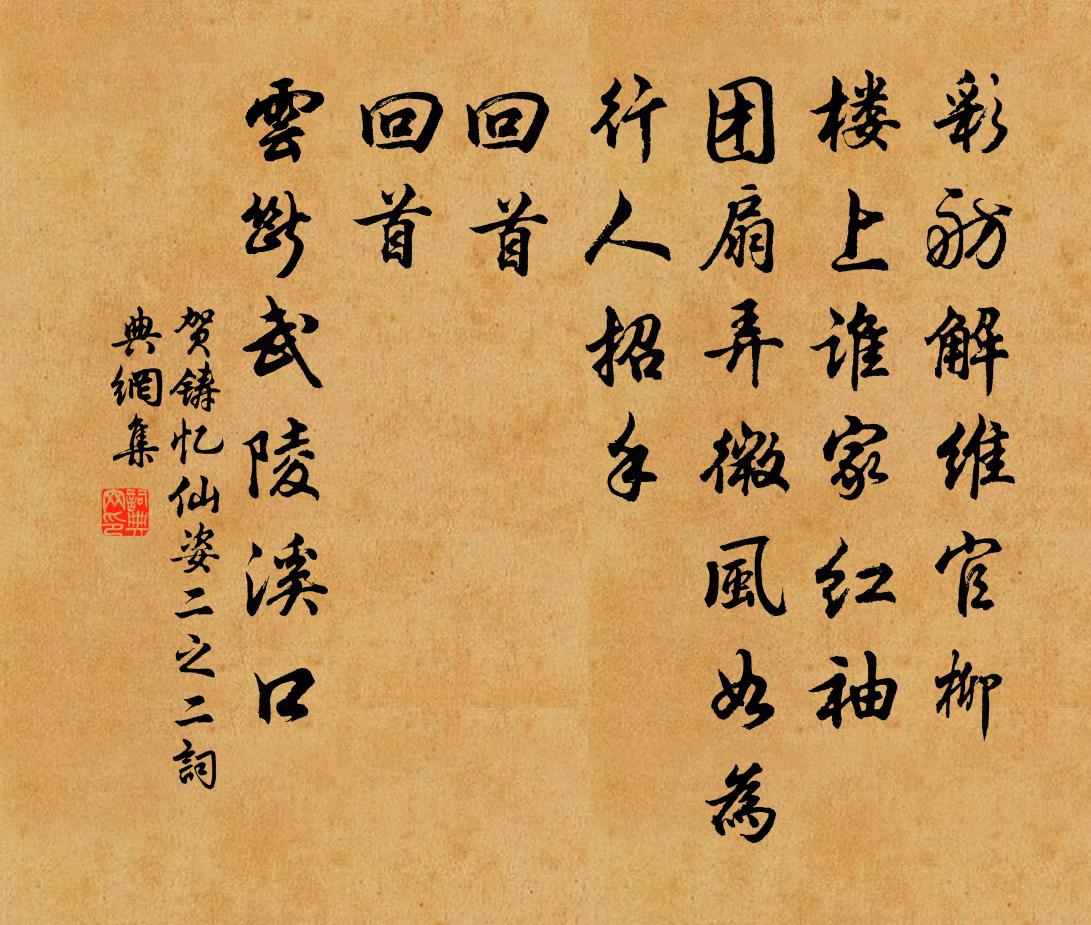 彩舫解维官柳
楼上谁家红袖
团扇弄微風如為
行人招手
回首
回首
雲断武陵溪口
贺铸忆仙姿二之二詞
典網集
詞典网印